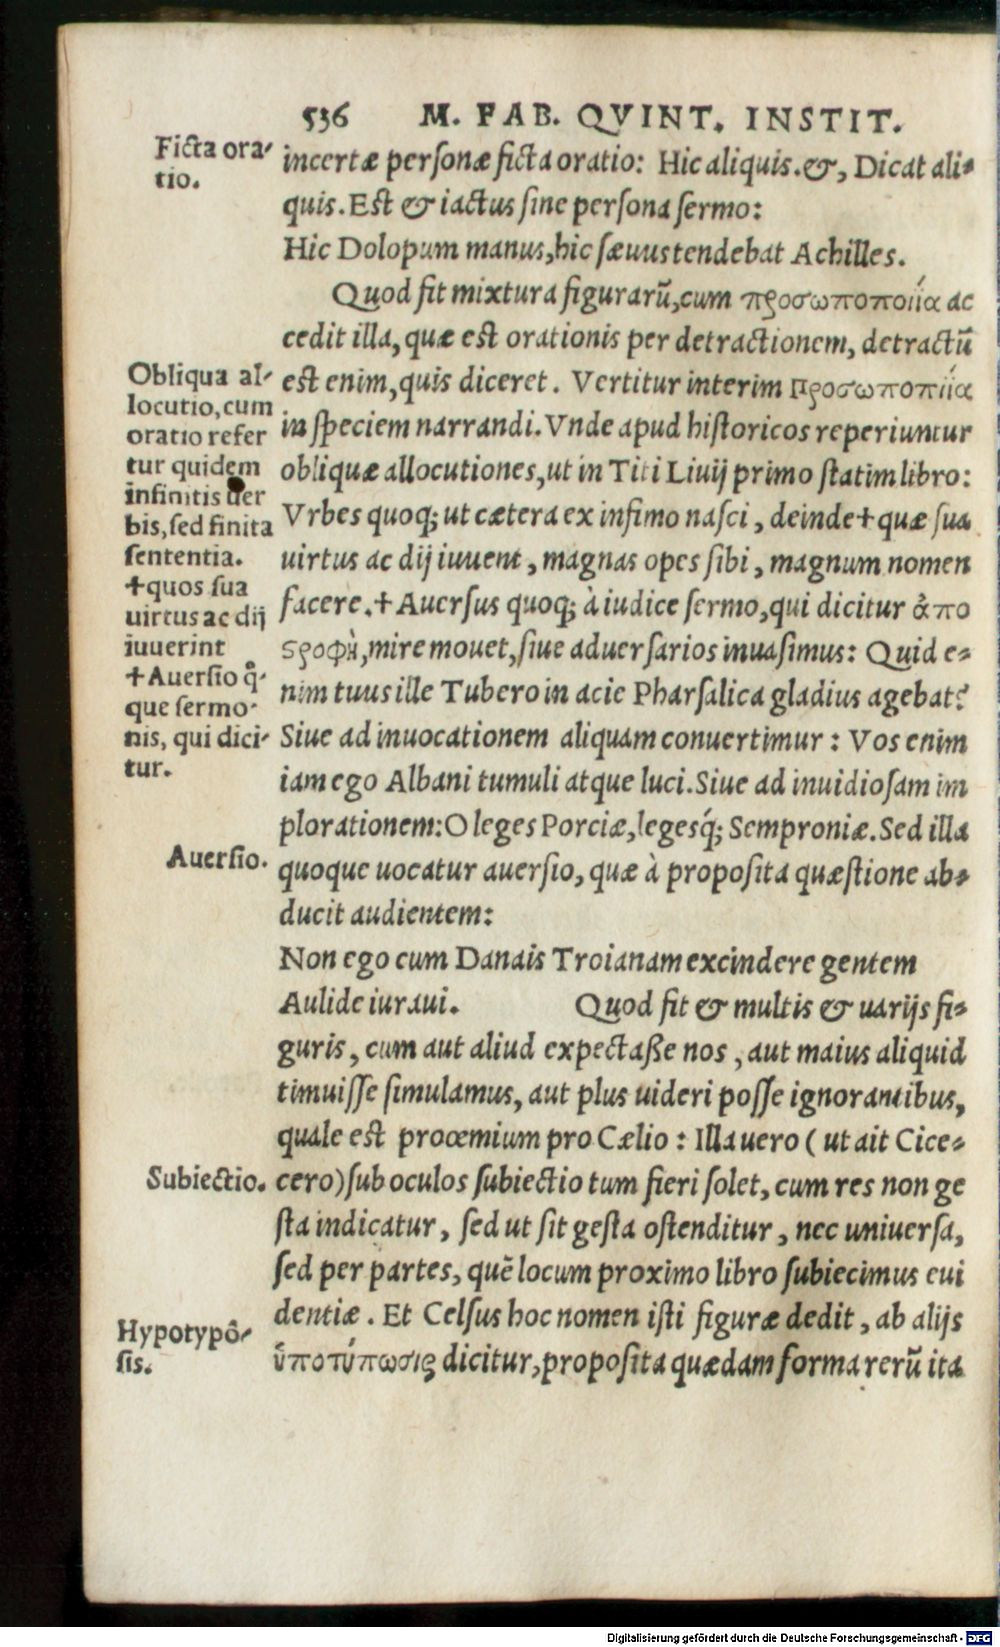 536 M. FAB. QVINT. INSTIT.
Ficta ora-
tio.
incertæ personæ ficta oratio: Hic aliquis.&, Dicat ali-
quis. Est & iactus sine persona sermo:
Hic Dolopum manus, hic sæuus tendebat Achilles.
Quod fit mixtura figurarũ, cum προσωποποιΐα ac
cedit illa, quæ est orationis per detractionem, detractũ
Obliqua al-
locutio, cum
oratio refer
tur quidem
infinitis uer
bis, sed finita
sententia.
+quos sua
uirtus ac dij
iuuerint
+Auersio q̊-
que sermo-
nis, qui dici-
tur.
est enim, quis diceret. Vertitur interim προσωποπιΐα
in speciem narrandi. Vnde apud historicos reperiuntur
obliquæ allocutiones, ut in Titi Liuij primo statim libro:
Vrbes quoq; ut cætera ex infimo nasci, deinde+quæ sua
uirtus ac dij iuuent, magnas opes sibi, magnum nomen
facere.+Auersus quoq; à iudice sermo, qui dicitur ἀπο
ϛροφὴ, mire mouet, siue aduersarios inuasimus: Quid e-
nim tuus ille Tubero in acie Pharsalica gladius agebat?
Siue ad inuocationem aliquam conuertimur: Vos enim
iam ego Albani tumuli atque luci. Siue ad inuidiosam im
plorationem: O leges Porciæ, legesq́; Semproniæ. Sed illa
Auersio.
quoque uocatur auersio, quæ à proposita quæstione ab-
ducit audientem:
Non ego cum Danais Troianam excindere gentem
Aulide iuraui. Quod fit & multis & uarijs fi-
guris, cum aut aliud expectaße nos, aut maius aliquid
timuisse simulamus, aut plus uideri posse ignorantibus,
quale est prooemium pro Cælio: Illa uero (ut ait Cice-
Subiectio.
cero) sub oculos subiectio tum fieri solet, cum res non ge
sta indicatur, sed ut sit gesta ostenditur, nec uniuersa,
sed per partes, quẽ locum proximo libro subiecimus eui
Hypotypô-
sis.
dentiæ. Et Celsus hoc nomen isti figuræ dedit, ab alijs
ὑποτύπωσις dicitur, proposita quædam forma rerũ ita
Digitalisierung gefördert durch die Deutsche Forschungsgemeinschaft - DFG